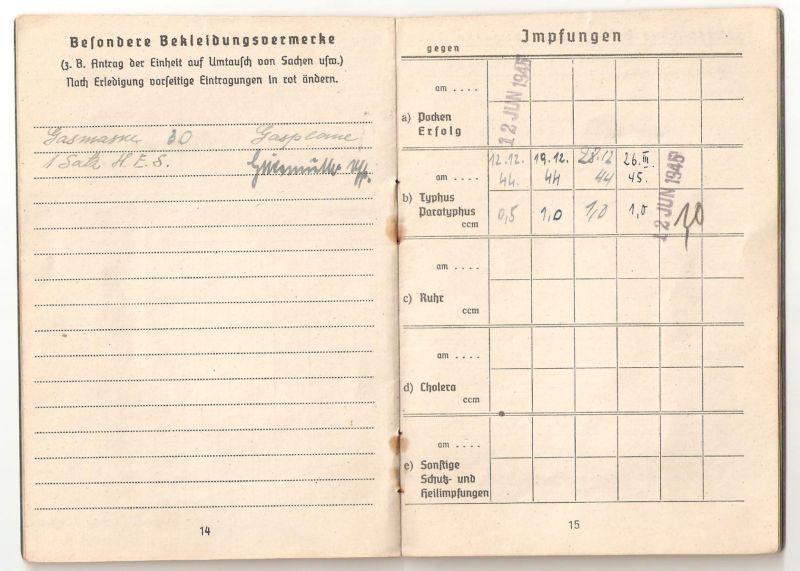 Besondere Bekleidungsvermerke
(z. B. Antrag der Einheit auf Umtausch von Sachen usw.)
Nach Erledigung vorseitige Eintragungen in rot ändern.
Gasmaske 30 Gasplane
1 Satz H.E.S.
14
gegen Impfungen
am ....
12 JUN 1945
a) Pocken
Erfolg
am .... 12.12. 44. 19.12. 44 28.12 44 26.III. 45. 12 JUN 1945
b) Typhus
Paratyphus
ccm 0,5 1,0 1,0 1,0
am ....
c) Ruhr
ccm
am ....
d) Cholera
ccm
am ....
e) Sonstige
Schutz- und
Heilimpfungen
15